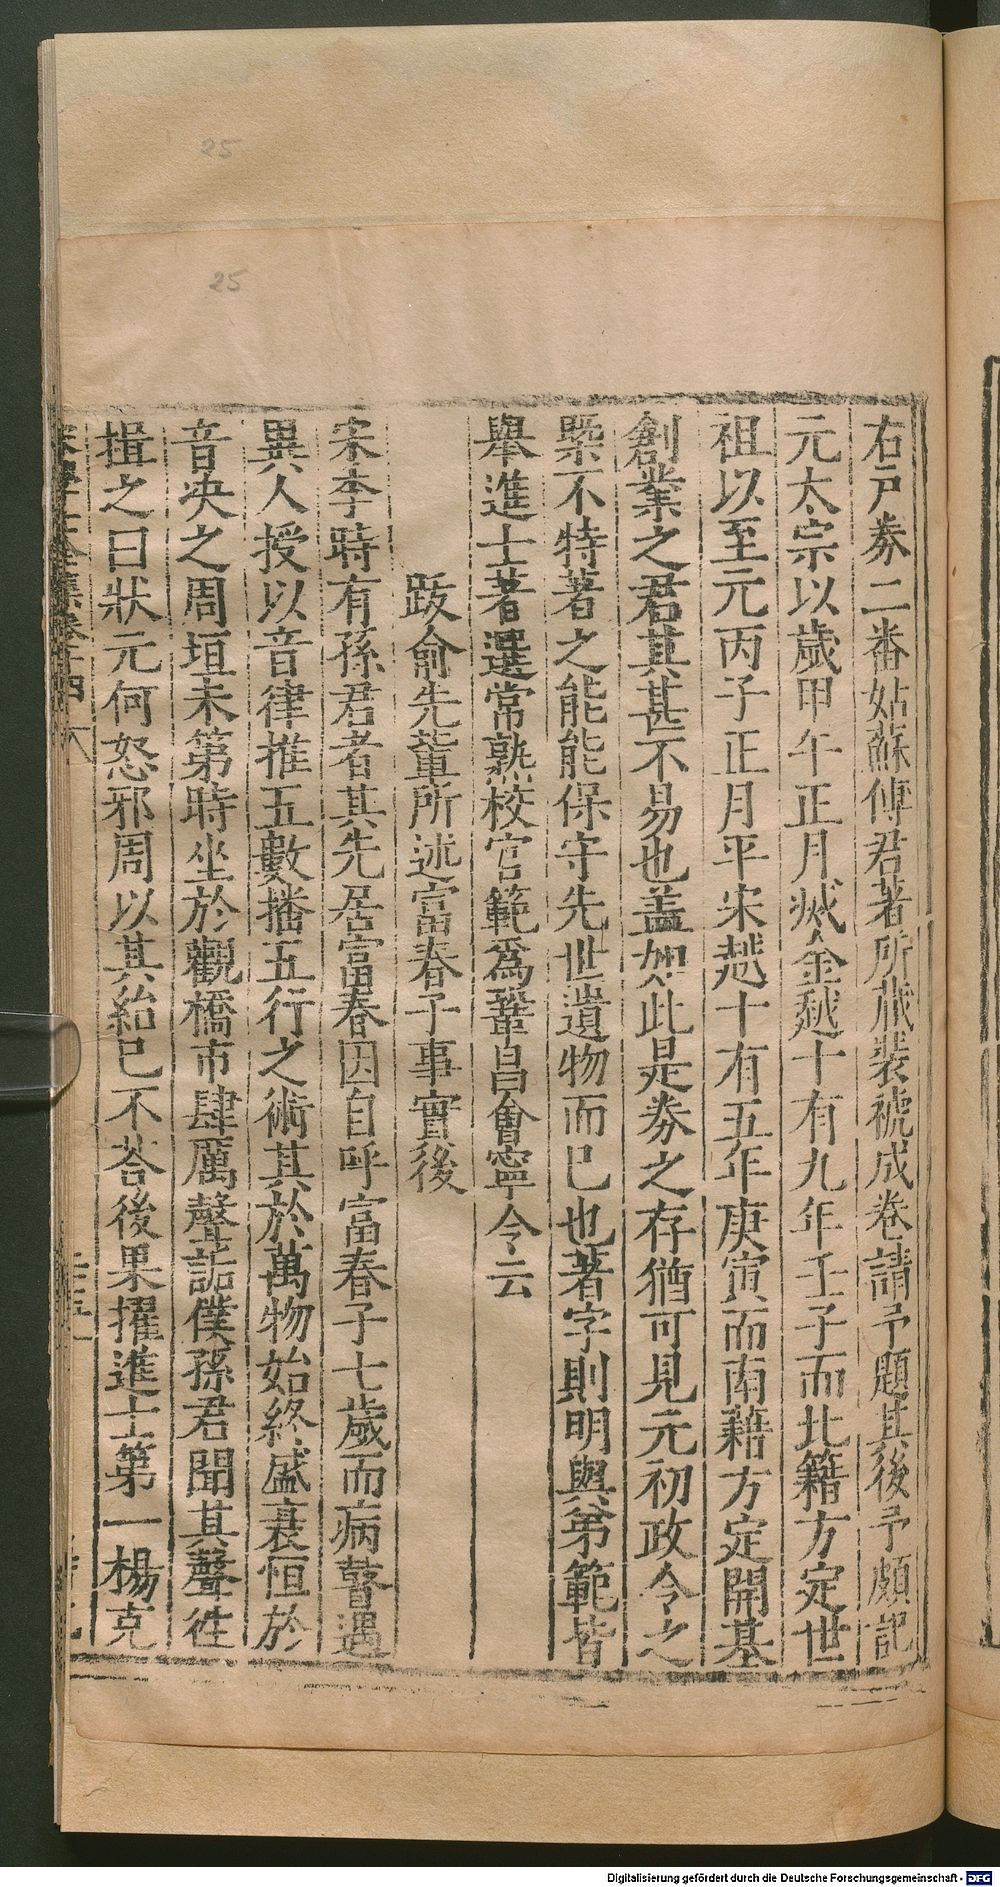 25
25
右戸券二番姑蘇傅君著所藏裝褫成卷請予題其後予頗記
元太宗以歲甲午正月滅金越十有九年壬子而北籍方定世
祖以至元丙子正月平宋越十有五年庚寅而南籍方定開基
創業之君其甚不易也盖如此是券之存猶可見元初政令之
槩不特著之能能保守先世遺物而已也著字則明與弟範皆
舉進士著選常熟校官範爲鞏昌會寧令云
跋俞先輩所述富春子事實後
宋季時有孫君者其先居富春因自呼富春子七歲而病瞽遇
異人授以音律推五數播五行之術其於萬物始終盛衰恒於
音决之周垣未第時坐於觀橋市肆厲聲詬僕孫君聞其聲徃
揖之曰狀元何怒邪周以其紿已不荅後果擢進士第一楊克
Digitalisierung gefördert durch die Deutsche Forschungsgemeinschaft - DFG